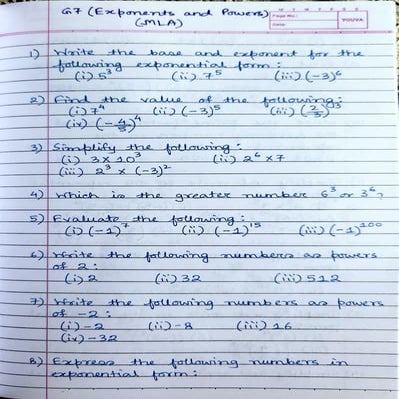 G7 (Exponents and Powers)
(MLA)
Page No.:
Date:
YOUVA
1) Write the base and exponent for the
following exponential form:
(i) 5³ (ii) 7⁵ (iii) (-3)⁶
2) Find the value of the following:
(i) 7⁴ (ii) (-3)⁵ (iii) (2/3)³
(iv) (-4/5)⁴
3) Simplify the following:
(i) 3 × 10³ (ii) 2⁶ × 7
(iii) 2³ × (-3)²
4) Which is the greater number 6³ or 3⁶?
5) Evaluate the following:
(i) (-1)⁷ (ii) (-1)¹⁵ (iii) (-1)¹⁰⁰
6) Write the following numbers as powers
of 2:
(i) 2 (ii) 32 (iii) 512
7) Write the following numbers as powers
of -2:
(i) -2 (ii) -8 (iii) 16
(iv) -32
8) Express the following numbers in
exponential form: